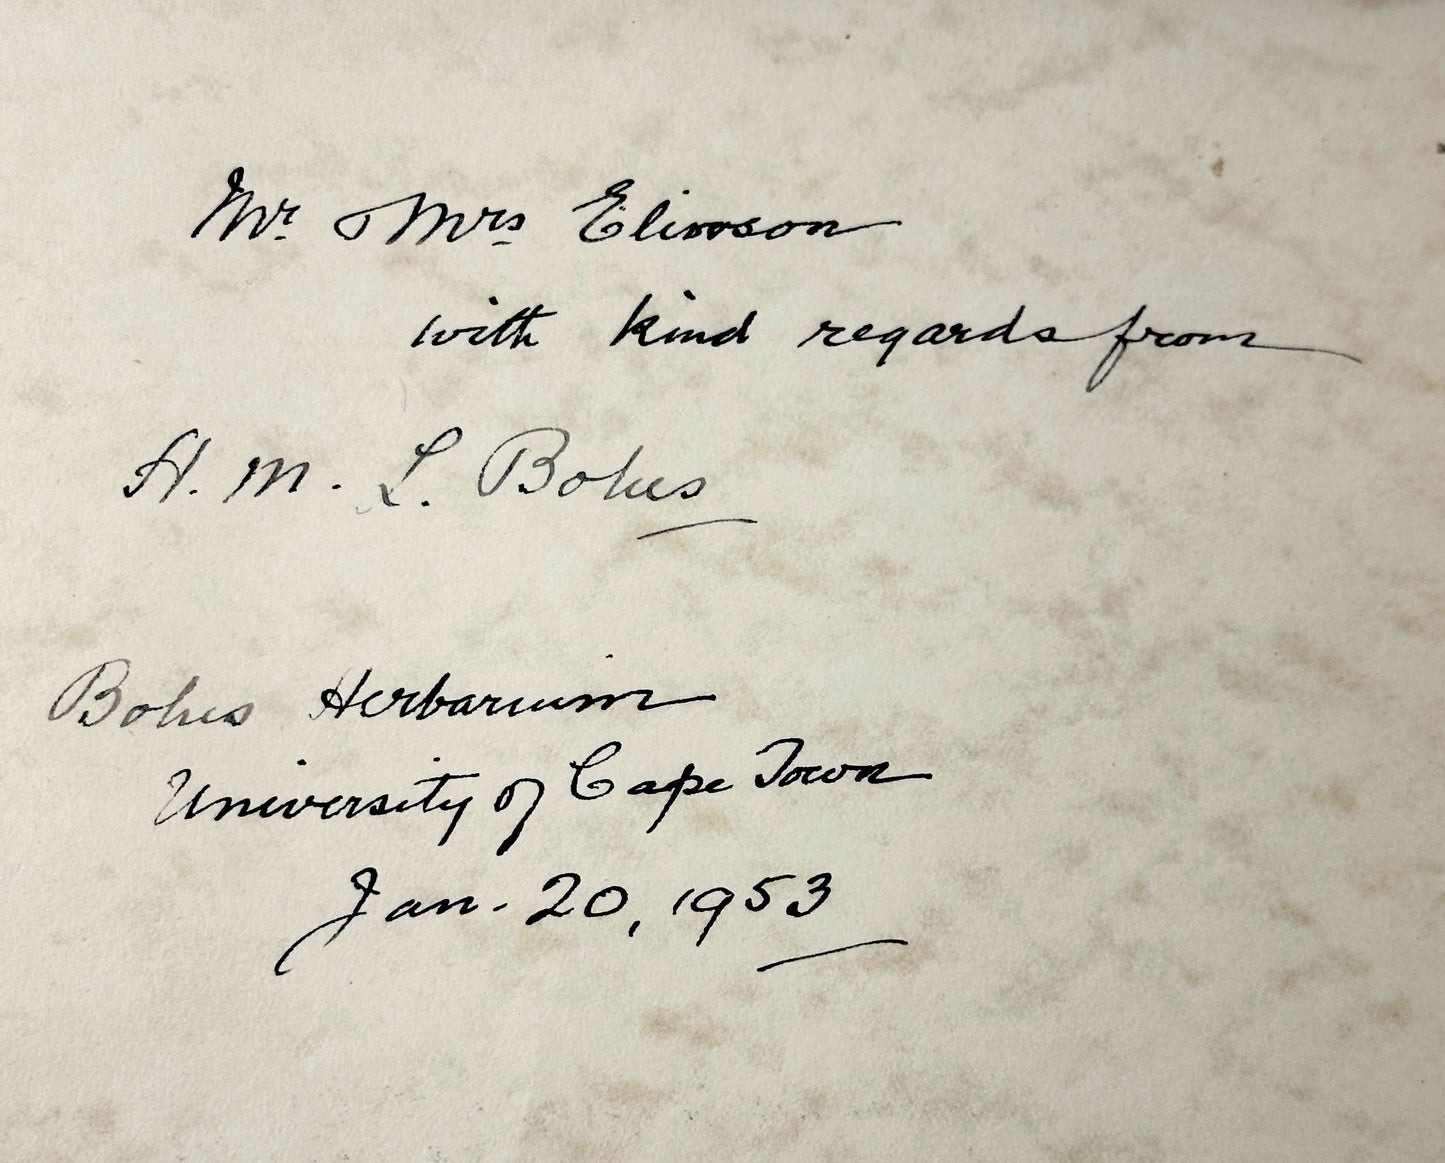 Mr. & Mrs Elivoson
with kind regards from
H. M. L. Bolus
Bolus Herbarium
University of Cape Town
Jan. 20, 1953